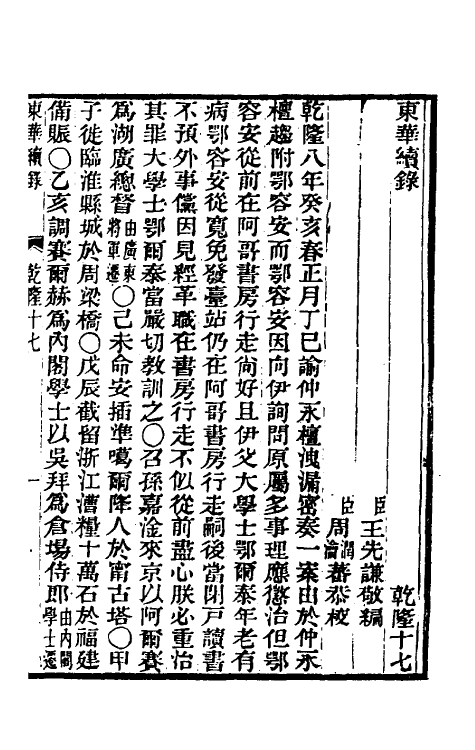 東華續錄 乾隆十七
臣王先謙敬編
臣周潤蕃 周瀹蕃恭校
乾隆八年癸亥春正月丁巳諭仲永檀洩漏密奏一案由於仲永
檀趨附鄂容安而鄂容安因向伊詢問原屬多事理應懲治但鄂
容安從前在阿哥書房行走尙好且伊父大學士鄂爾泰年老有
病鄂容安從寬免發臺站仍在阿哥書房行走嗣後當閉戸讀書
不預外事儻因見經革職在書房行走不似從前盡心朕必重治
其罪大學士鄂爾泰當嚴切教訓之〇召孫嘉淦來京以阿爾賽
爲湖廣總督由廣東將軍遷〇己未命安插準噶爾降人於甯古塔〇甲
子徙臨淮縣城於周梁橋〇戊辰截留浙江漕糧十萬石於福建
備賑〇乙亥調賽爾赫爲內閣學士以吳拜爲倉場侍郎由內閣學士遷
東華續錄 乾隆十七 一